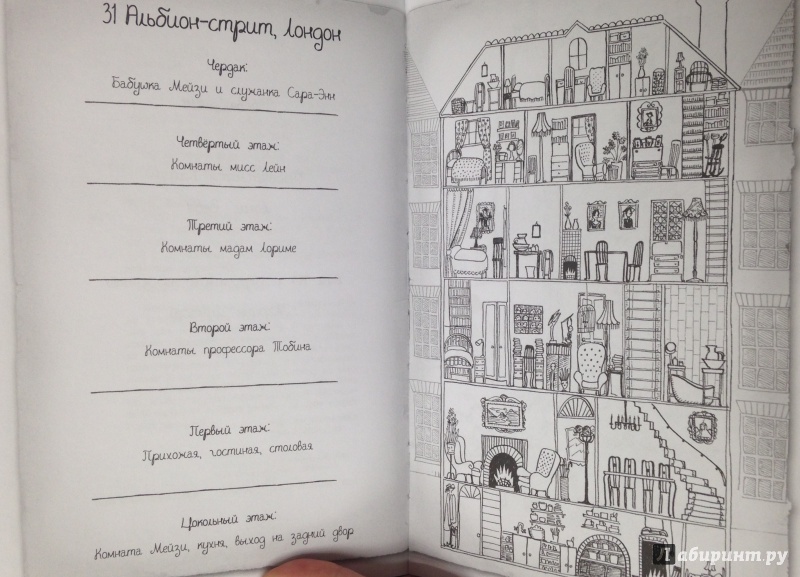 31 Альбион-стрит, Лондон
Чердак:
Бабушка Мейзи и служанка Сара-Энн
Четвертый этаж:
Комнаты мисс Лейн
Третий этаж:
Комнаты мадам Лориме
Второй этаж:
Комнаты профессора Тобина
Первый этаж:
Прихожая, гостиная, столовая
Цокольный этаж:
Комната Мейзи, кухня, выход на задний двор
Лабиринт.ру